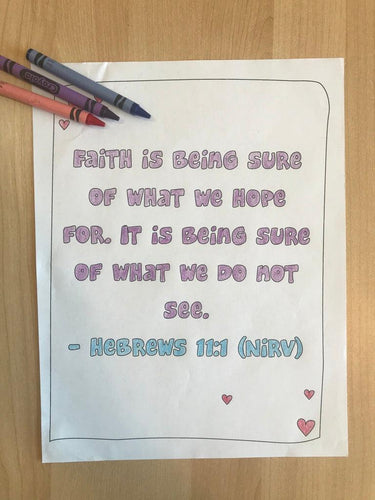 Crayola
FAITH IS BEING SURE
OF WHAT WE HOPE
FOR. IT IS BEING SURE
OF WHAT WE DO NOT
SEE.
- HEBREWS 11:1 (NIRV)